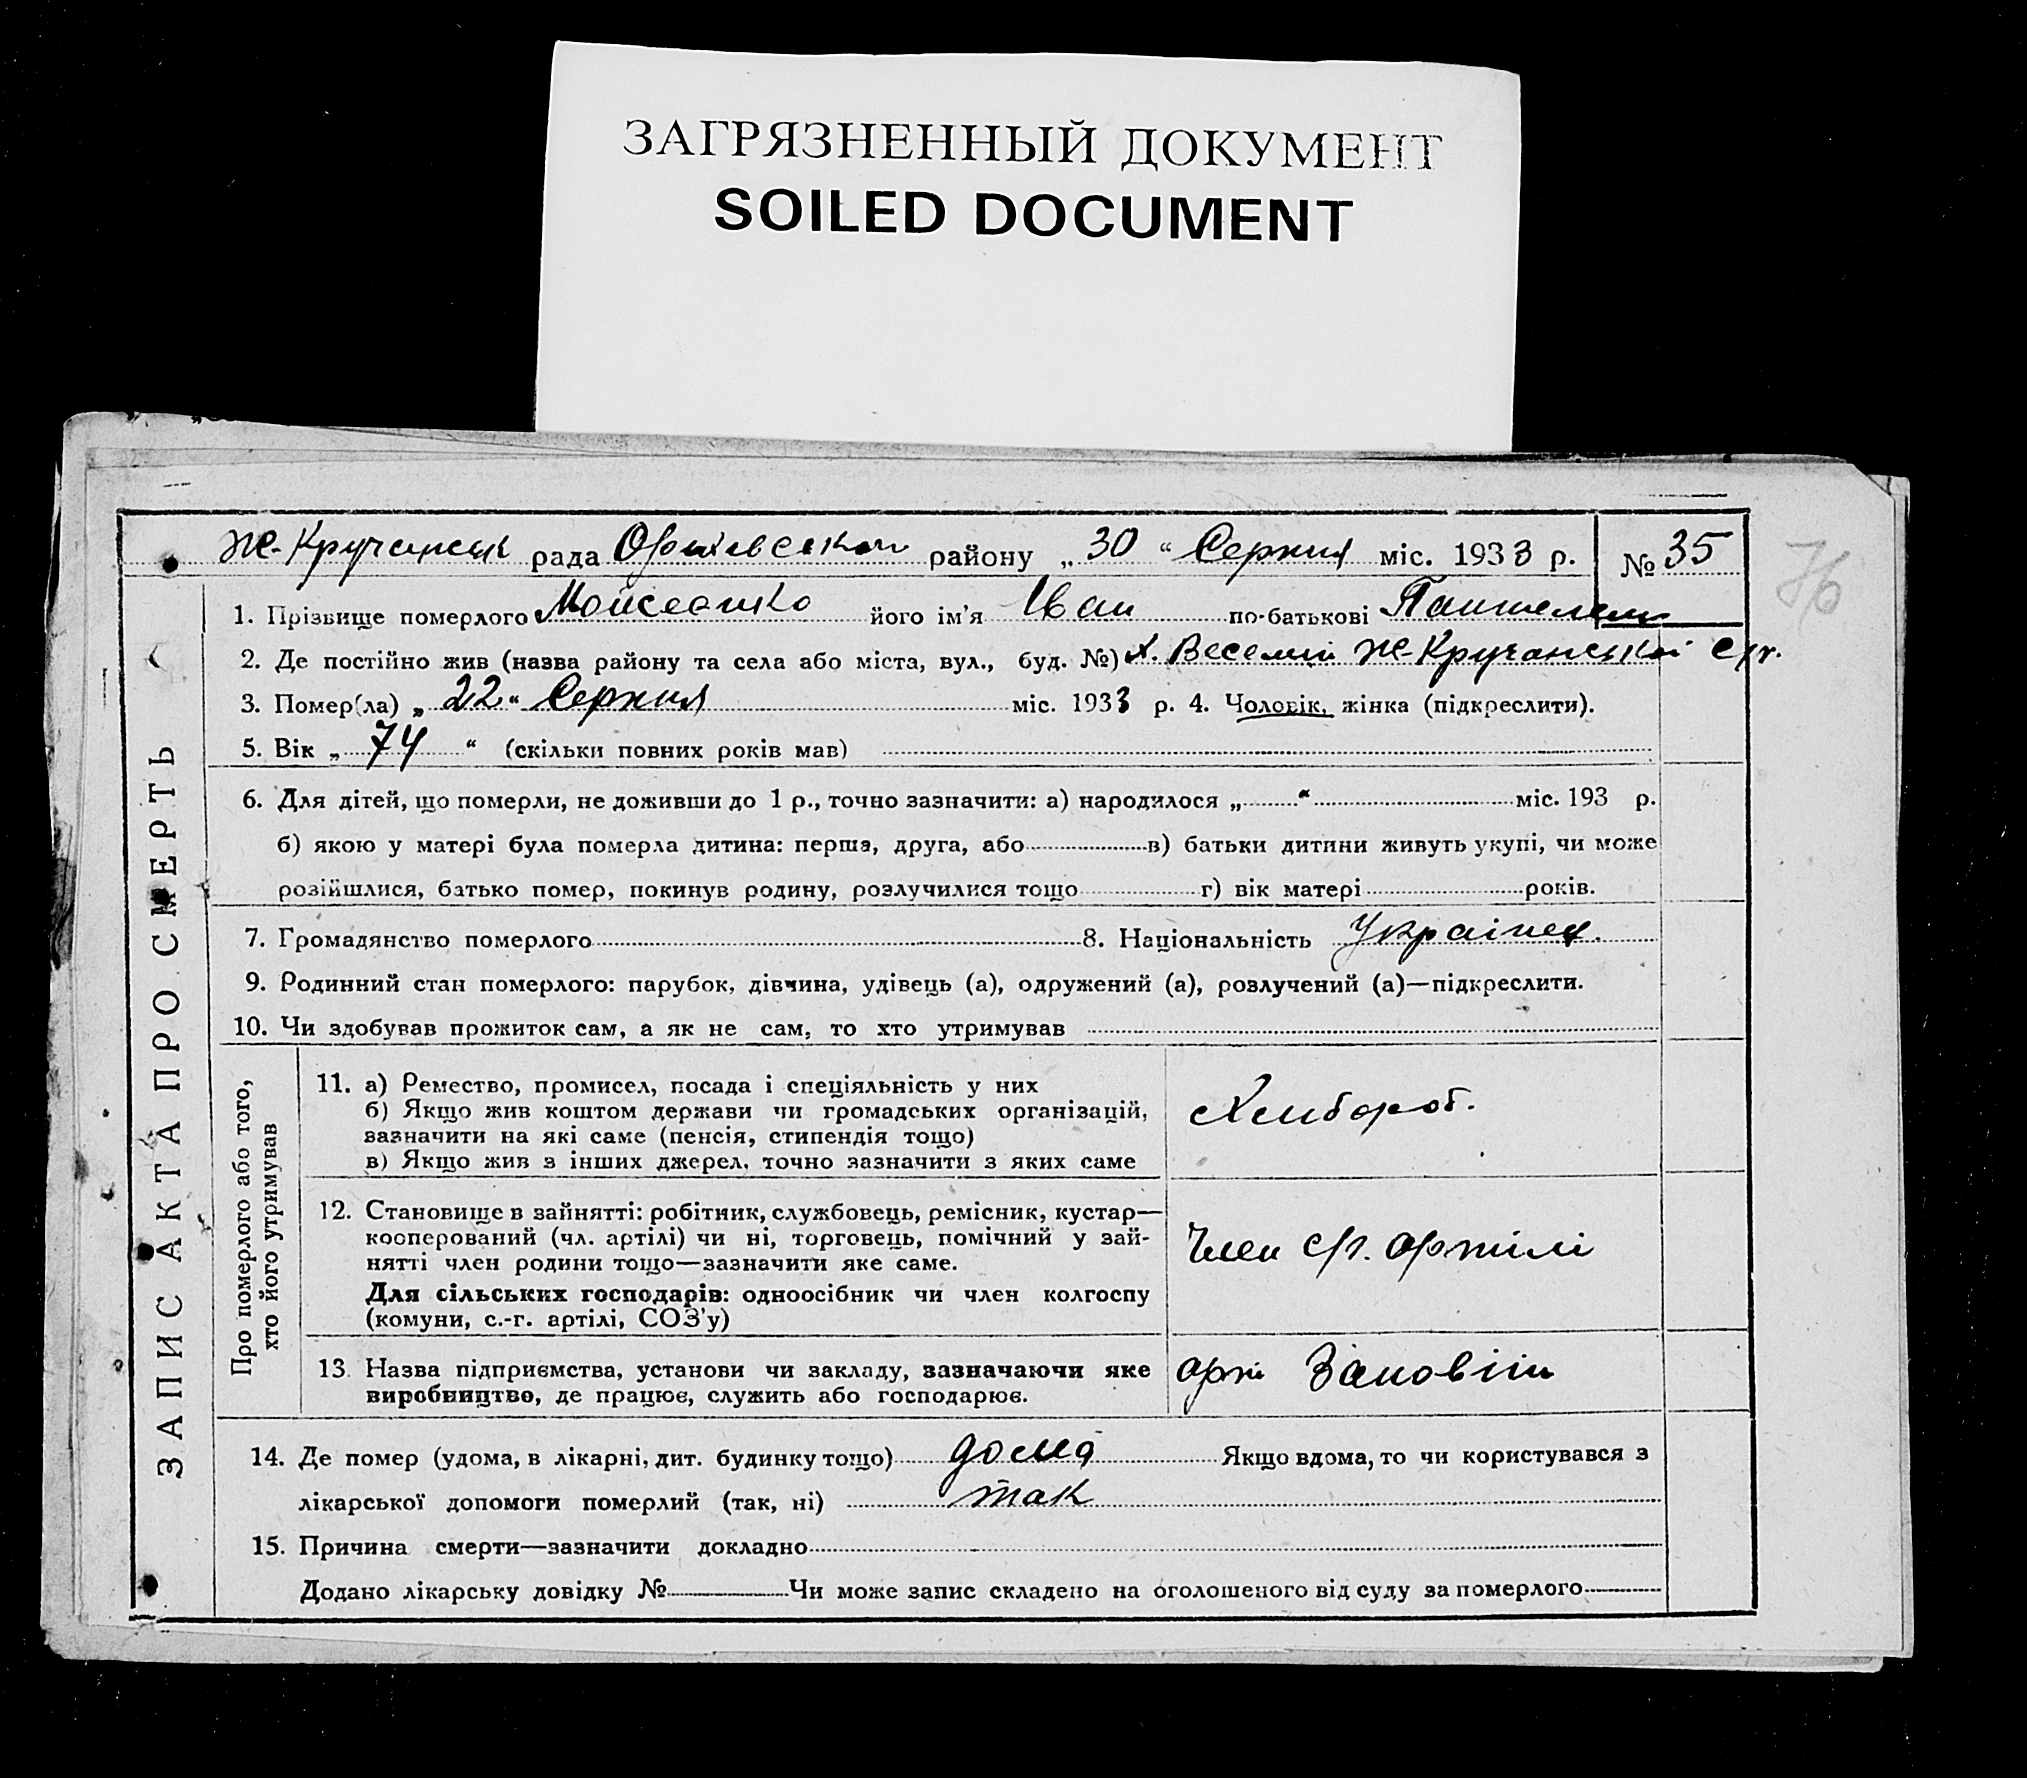 ЗАГРЯЗНЕННЫЙ ДОКУМЕНТ
SOILED DOCUMENT
рада району „30“ Серпня міс. 1933 р. № 35
76
1. Прізвище померлого його ім’я Іван по-батькові
2. Де постійно жив (назва району та села або міста, вул., буд. №) х. Веселий
3. Помер(ла) „22“ Серпня міс. 1933 р. 4. Чоловік, жінка (підкреслити).
5. Вік „74“ (скільки повних років мав)
6. Для дітей, що померли, не доживши до 1 р., точно зазначити: а) народилося „ “ міс. 193 р.
б) якою у матері була померла дитина: перша, друга, або в) батьки дитини живуть укупі, чи може
розійшлися, батько помер, покинув родину, розлучилися тощо г) вік матері років.
7. Громадянство померлого 8. Національність Українец.
9. Родинний стан померлого: парубок, дівчина, удівець (а), одружений (а), розлучений (а)—підкреслити.
10. Чи здобував прожиток сам, а як не сам, то хто утримував
ЗАПИС АКТА ПРО СМЕРТЬ
Про померлого або того,
хто його утримував
11. а) Ремество, промисел, посада і спеціяльність у них
б) Якщо жив коштом держави чи громадських організацій,
зазначити на які саме (пенсія, стипендія тощо)
в) Якщо жив з інших джерел, точно зазначити з яких саме
Хлібороб.
12. Становище в зайнятті: робітник, службовець, ремісник, кустар—
кооперований (чл. артілі) чи ні, торговець, помічний у зай-
нятті член родини тощо—зазначити яке саме.
Для сільських господарів: одноосібник чи член колгоспу
(комуни, с.-г. артілі, СОЗ’у)
Член с/г. артілі
13. Назва підприємства, установи чи закладу, зазначаючи яке
виробництво, де працює, служить або господарює.
Заповіт
14. Де помер (удома, в лікарні, дит. будинку тощо) дома Якщо вдома, то чи користувався з
лікарської допомоги померлий (так, ні) так
15. Причина смерти—зазначити докладно
Додано лікарську довідку № Чи може запис складено на оголошеного від суду за померлого